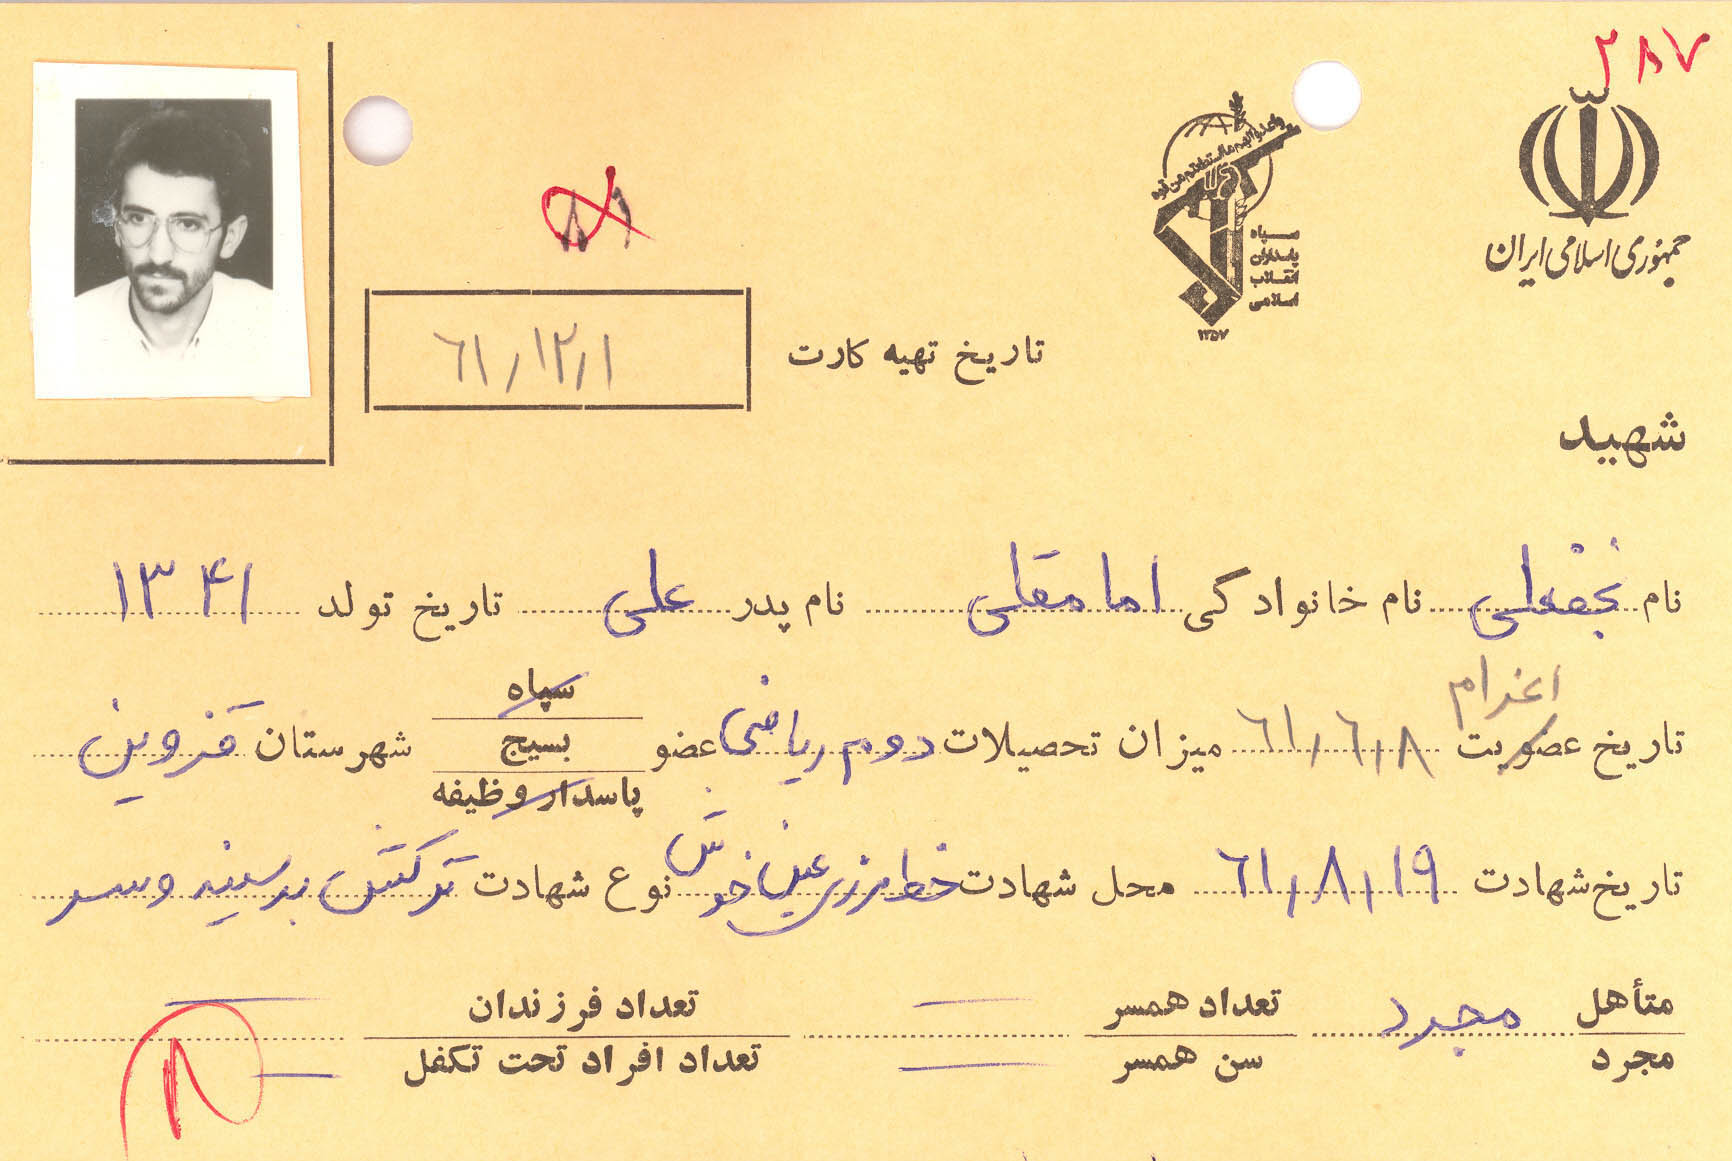 ۲۸۷
جمهوری اسلامی ایران
واعدوا لهم ما استطعتم من قوة
سپاه
پاسداران
انقلاب
اسلامی
۱۳۵۷
۸۱
تاریخ تهیه کارت ۶۱/۱۲/۱
شهید
نام نجفعلی نام خانوادگی امامقلی نام پدر علی تاریخ تولد ۱۳۴۱
اعزام
تاریخ عضویت ۶۱/۶/۸ میزان تحصیلات دوم ریاضی عضو سپاه بسیج پاسدار وظیفه شهرستان قزوین
تاریخ شهادت ۶۱/۸/۱۹ محل شهادت خط مرزی عین خوش نوع شهادت ترکش بر سینه و سر
متأهل مجرد مجرد تعداد همسر سن همسر تعداد فرزندان تعداد افراد تحت تکفل